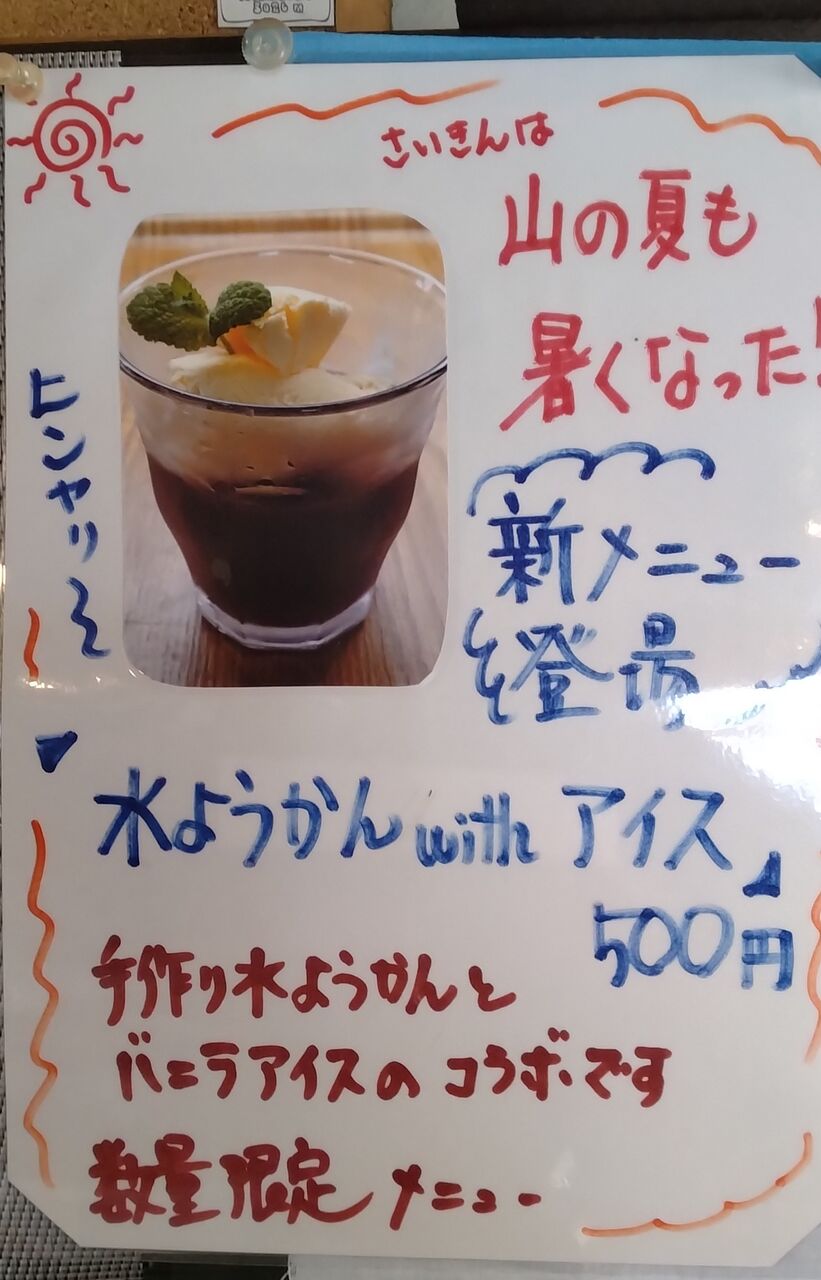 3026m
さいきんは
山の夏も
暑くなった!
ヒンヤリ～
新メニュー
登場
水ようかん with アイス
500円
手作り水ようかんと
バニラアイスのコラボです
数量限定メニュー